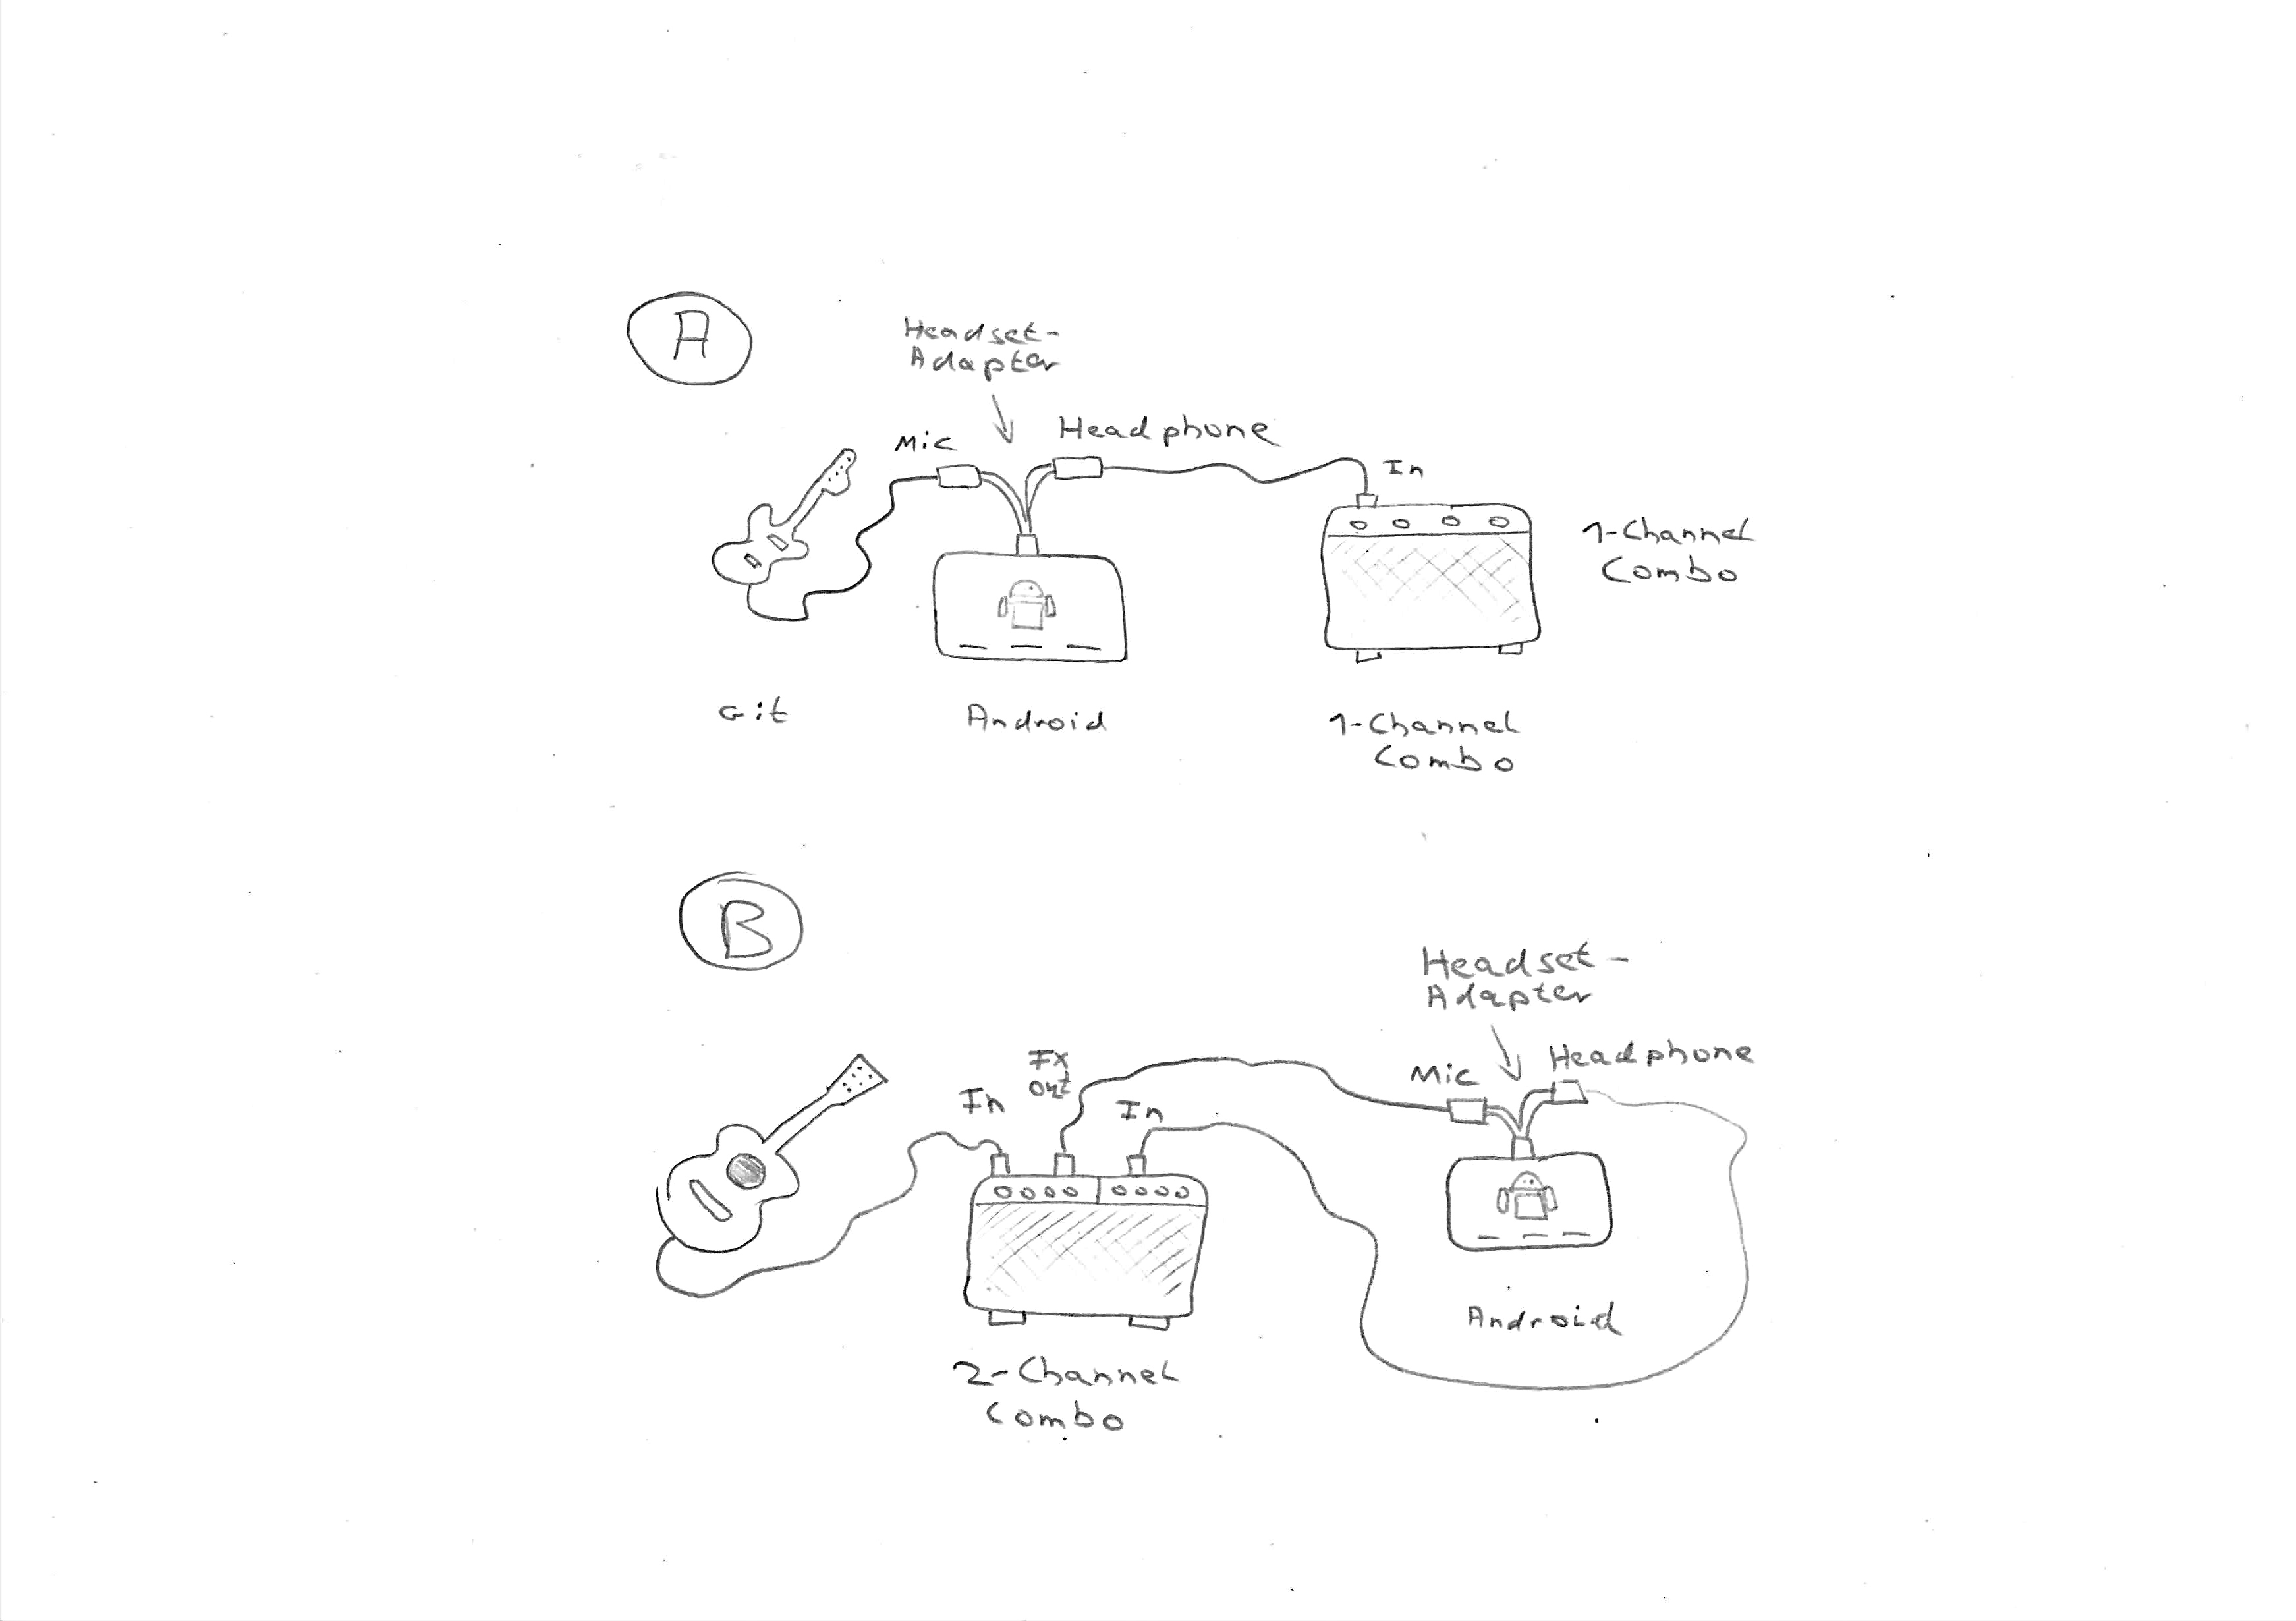 A
Headset-
Adapter
Mic
Headphone
In
1-Channel
Combo
Git
Android
1-Channel
Combo
B
Headset-
Adapter
Headphone
Mic
Fx
out
In
In
Android
2-Channel
Combo